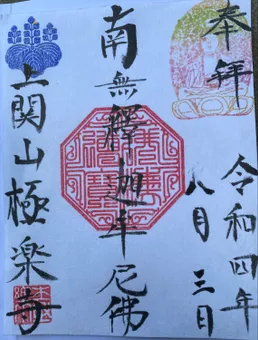 奉拝
令和四年
八月三日
南無釋迦牟尼佛
上関山極楽寺